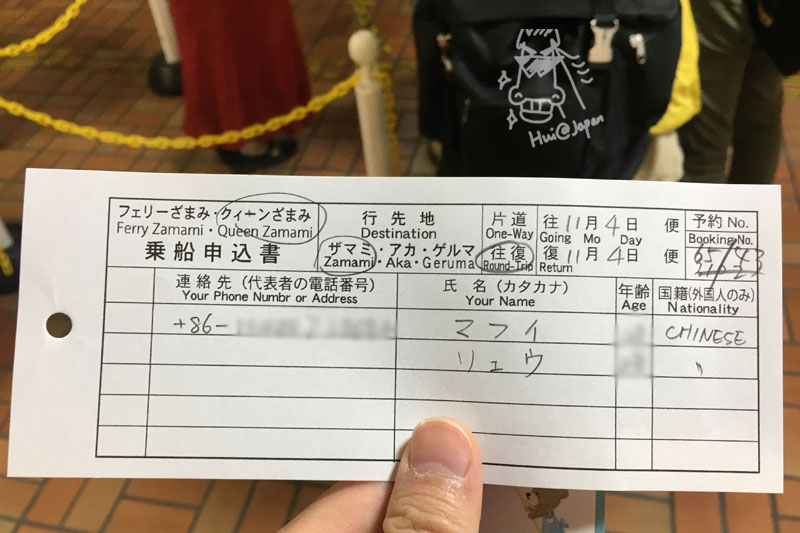 Hui@Japan
フェリーざまみ・クィーンざまみ
Ferry Zamami・Queen Zamami
乗船申込書
行先地
Destination
ザマミ・アカ・ゲルマ
Zamami・Aka・Geruma
片道
One-Way
往復
Round-Trip
往 11月 4日 便
Going Mo Day
復 11月 4日 便
Return
予約 No.
Booking No.
連絡先（代表者の電話番号）
Your Phone Numbr or Address
氏名（カタカナ）
Your Name
年齢
Age
国籍(外国人のみ)
Nationality
+86-
マフイ
CHINESE
リュウ
〃